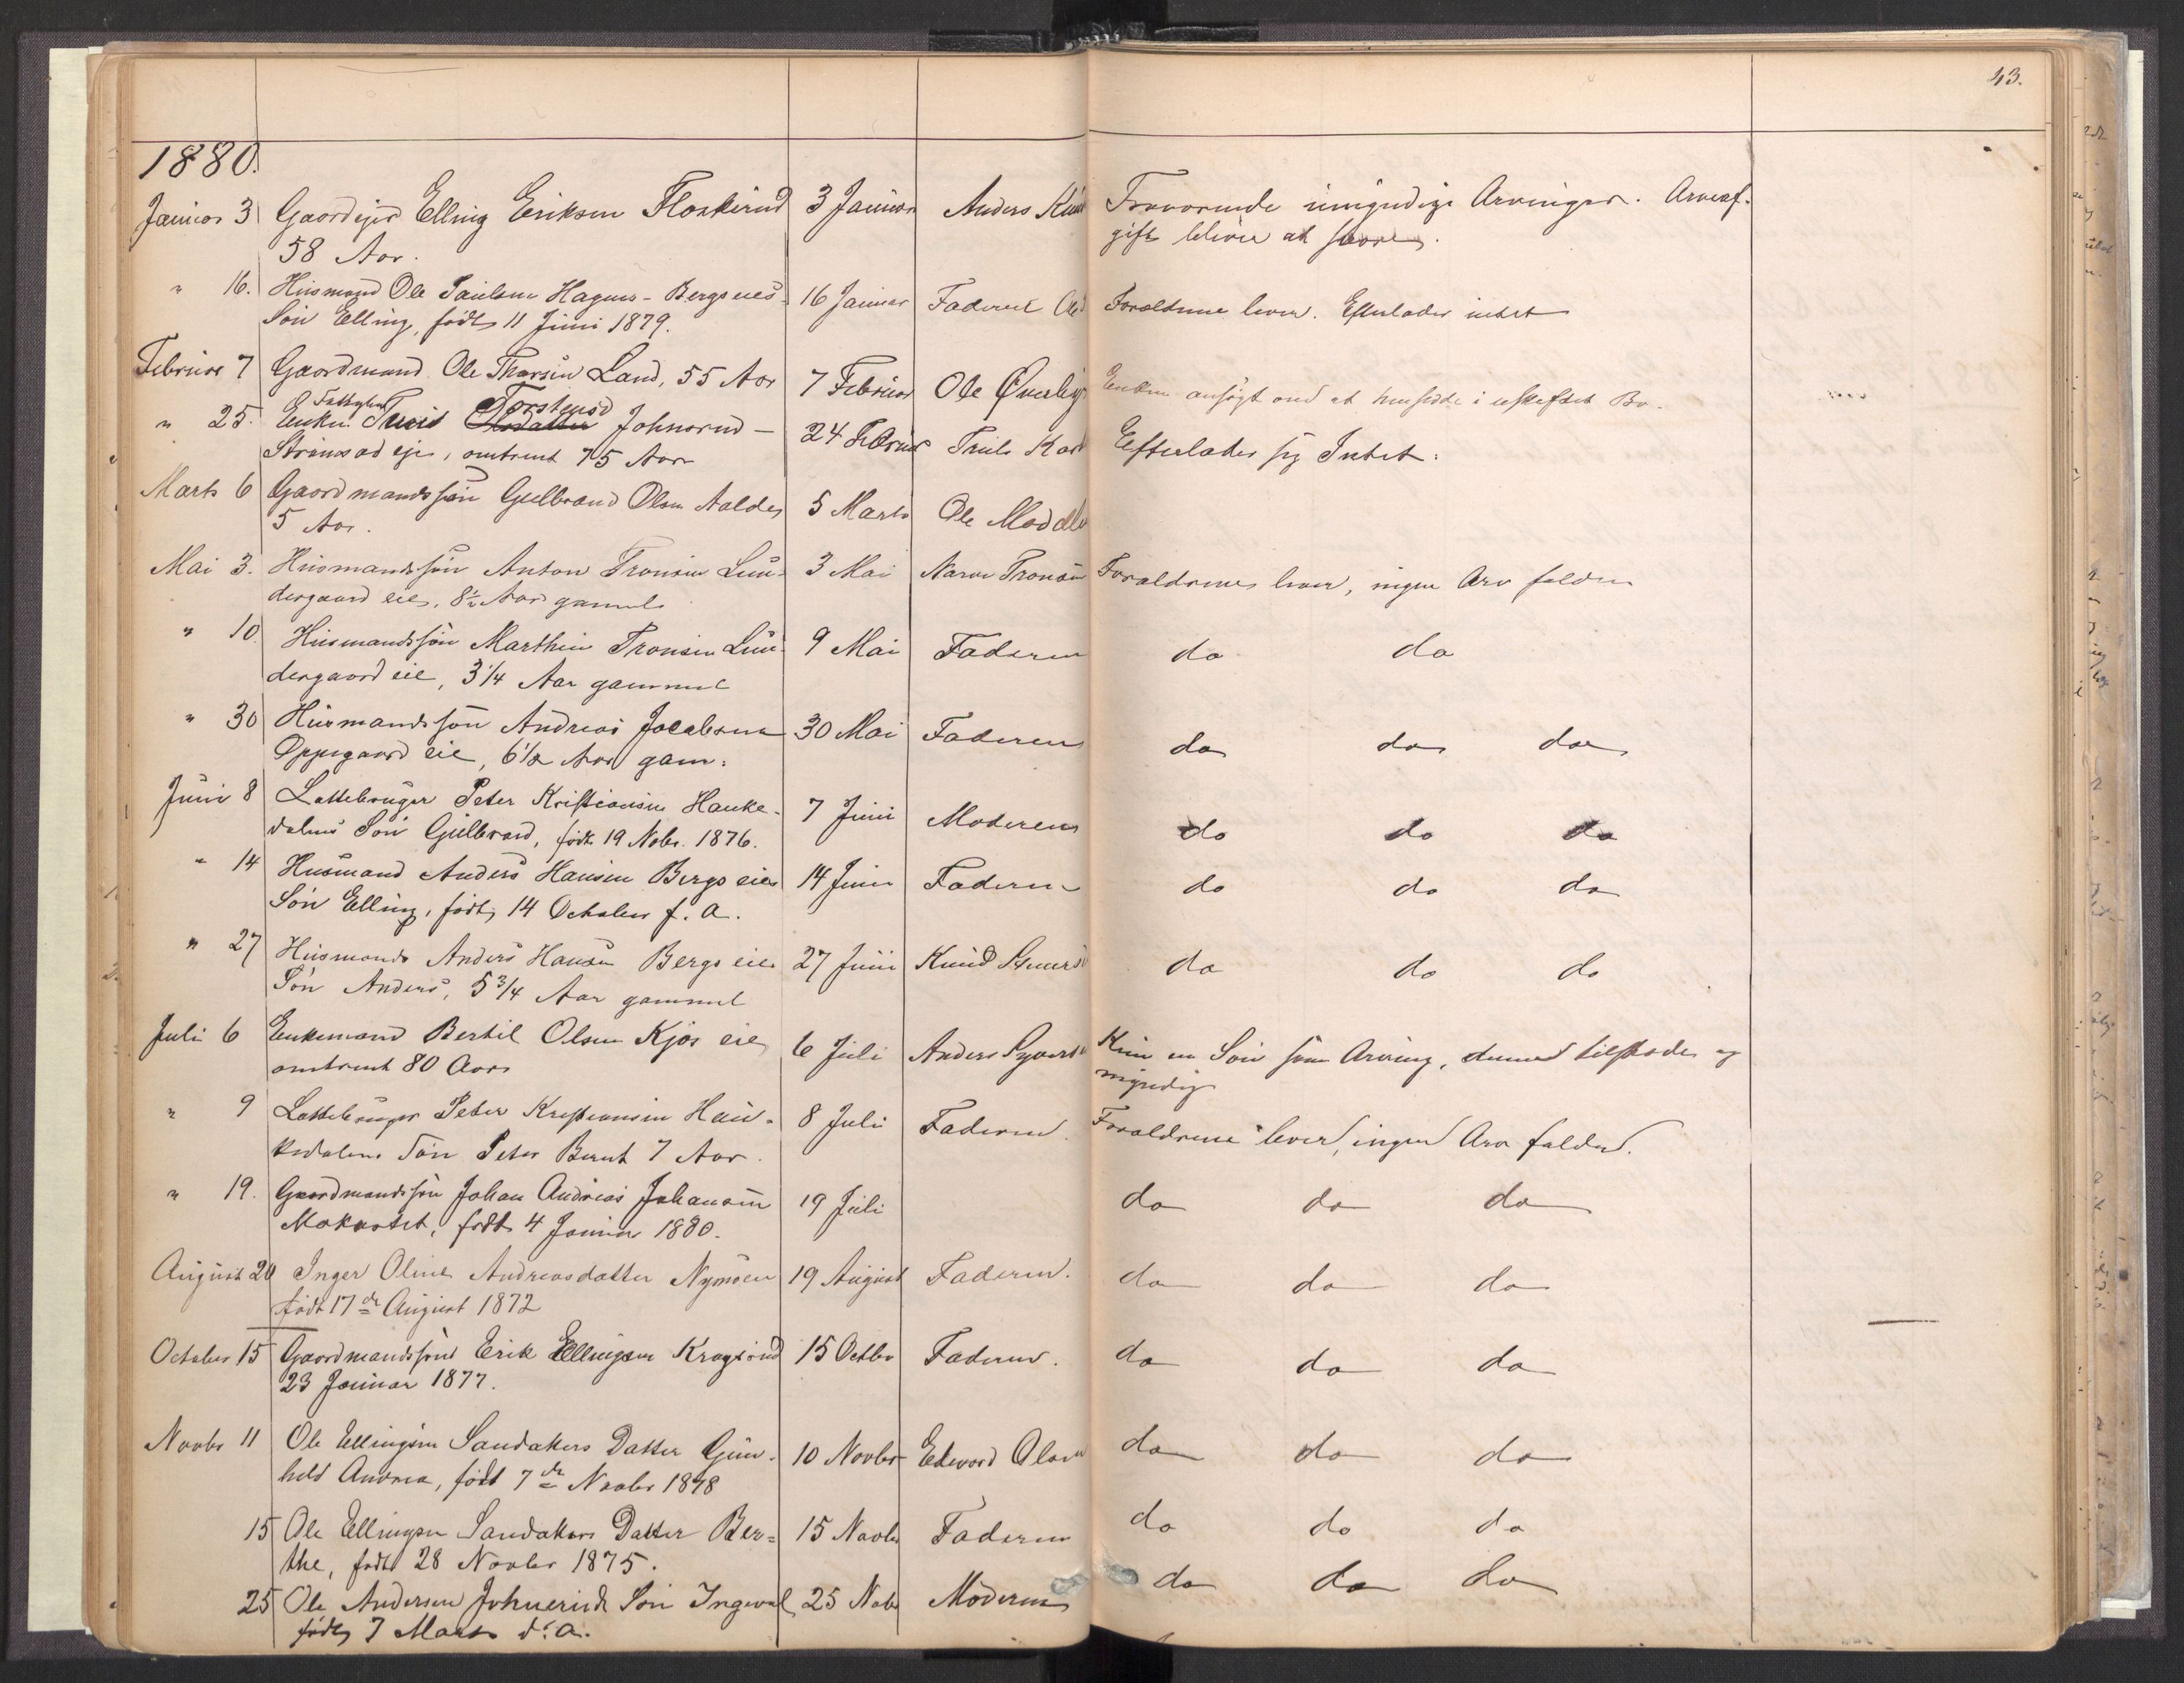 43.
1880.
Januar 3 Gaardejer Elling Eriksen Floskerud 3 Januar Anders Knud Fraværende umyndige Arvinger. Arveaf-
58 Aar. gift bliver at svare.
" 16. Husmand Ole Paulsen Hagnes-Bergs eies 16 Januar Faderen Ole Forældrene lever. Efterlader intet
Søn Elling, født 11 Juni 1879.
Februar 7 Gaardmand Ole Thorsen Land, 55 Aar 7 Februar Ole Øverby Enken ansøgt om at hensidde i uskiftet Bo.
Fattiglem Torstensd
" 25. Enken Turid Olsdatter Johnsrud- 24 Februar Truls Kar Efterlader sig Intet.
eje, omtrent 75 Aar
Marts 6 Gaardmandssøn Gulbrand Olsen Aaldes 5 Marts Ole
5 Aar.
Mai 3. Husmandssøn Anton Tronsen Lun- 3 Mai Narve Tronsen Forældrene lever, ingen Arv falder
dergaard eie, 8½ Aar gammel
" 10. Husmandssøn Marthin Tronsen Lun- 9 Mai Faderen do do
dergaard eie, 3 1/4 Aar gammel
" 30 Husmandssøn Andreas Jacobsen 30 Mai Faderen do do do
Oppegaard eie, 6½ Aar gam:
Juni 8 Lottebruger Peter Kristiansen Hauke- 7 Juni Moderen do do do
dalens Søn Gulbrand, født 19 Nobr. 1876.
" 14 Husmand Anders Hansen Bergs eies 14 Juni Faderen do do do
Søn Elling, født 14 October f. a.
" 27 Husmand Anders Hansen Bergs eies 27 Juni Knud do do do
Søn Anders, 5 3/4 Aar gammel
Juli 6 Enkemand Bertil Olsen Kjøs eie 6 Juli Anders Syvers Kun en Søn som Arving, denne tilstede og
omtrent 80 Aar myndig
" 9 Lottebruger Peter Kristiansen Hau- 8 Juli Faderen. Forældrene lever, ingen Arv falder.
kedalens Søn Peter Bernt 7 Aar.
" 19. Gaardmandssøn Johan Andreas Johansen 19 Juli do do do
født 4 Januar 1880.
August 20 Inger Oline Andreasdatter Nymoen 19 August Faderen. do do do
født 17de August 1872
October 15 Gaardmandssøn Erik Ellingsen Kragsrud 15 Octbr Faderen. do do do
23 Januar 1877.
Novbr 11 Ole Ellingsen Sandakers Datter Gun- 10 Novbr Edvard Olsen do do do
hild Andrea, født 7de Novbr 1878
15 Ole Ellingsen Sandakers Datter Ber= 15 Novbr Faderen do do do
the, født 28 Novbr 1875.
25 Ole Andersen Johnsruds Søn Ingvald 25 Nobr Moderen do do do
født 7 Marts d. a.